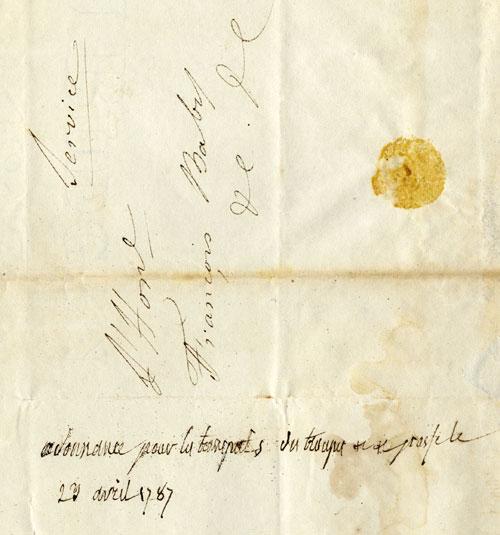 Service
L'Honble
François Baby
&c. &c
ordonnance pour les transports des troupes &c
23 avril 1787